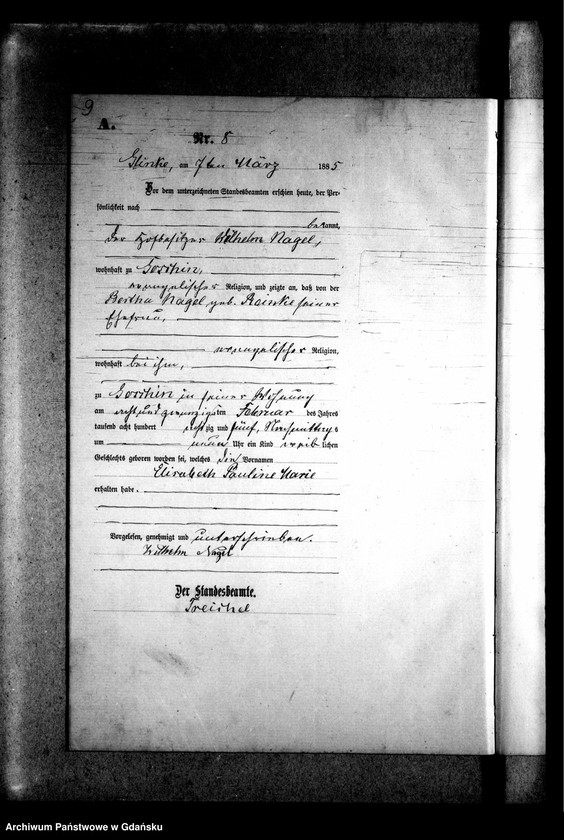 9
A.
Nr. 8
am 7ten März 1885
Vor dem unterzeichneten Standesbeamten erschien heute, der Per-
sönlichkeit nach
bekannt,
der Hofbesitzer Wilhelm Nagel,
wohnhaft zu
evangelischer Religion, und zeigte an, daß von der
Bertha Nagel geb. Reinke seiner
Ehefrau,
evangelischer Religion,
wohnhaft bei ihm,
zu in seiner Wohnung
am acht und zwanzigsten Februar des Jahres
tausend acht hundert achtzig und fünf, Nachmittags
um neun Uhr ein Kind weiblichen
Geschlechts geboren worden sei, welches die Vornamen
Elisabeth Pauline Marie
erhalten habe.
Vorgelesen, genehmigt und unterschrieben.
Wilhelm Nagel
Der Standesbeamte.
Treichel
Archiwum Państwowe w Gdańsku